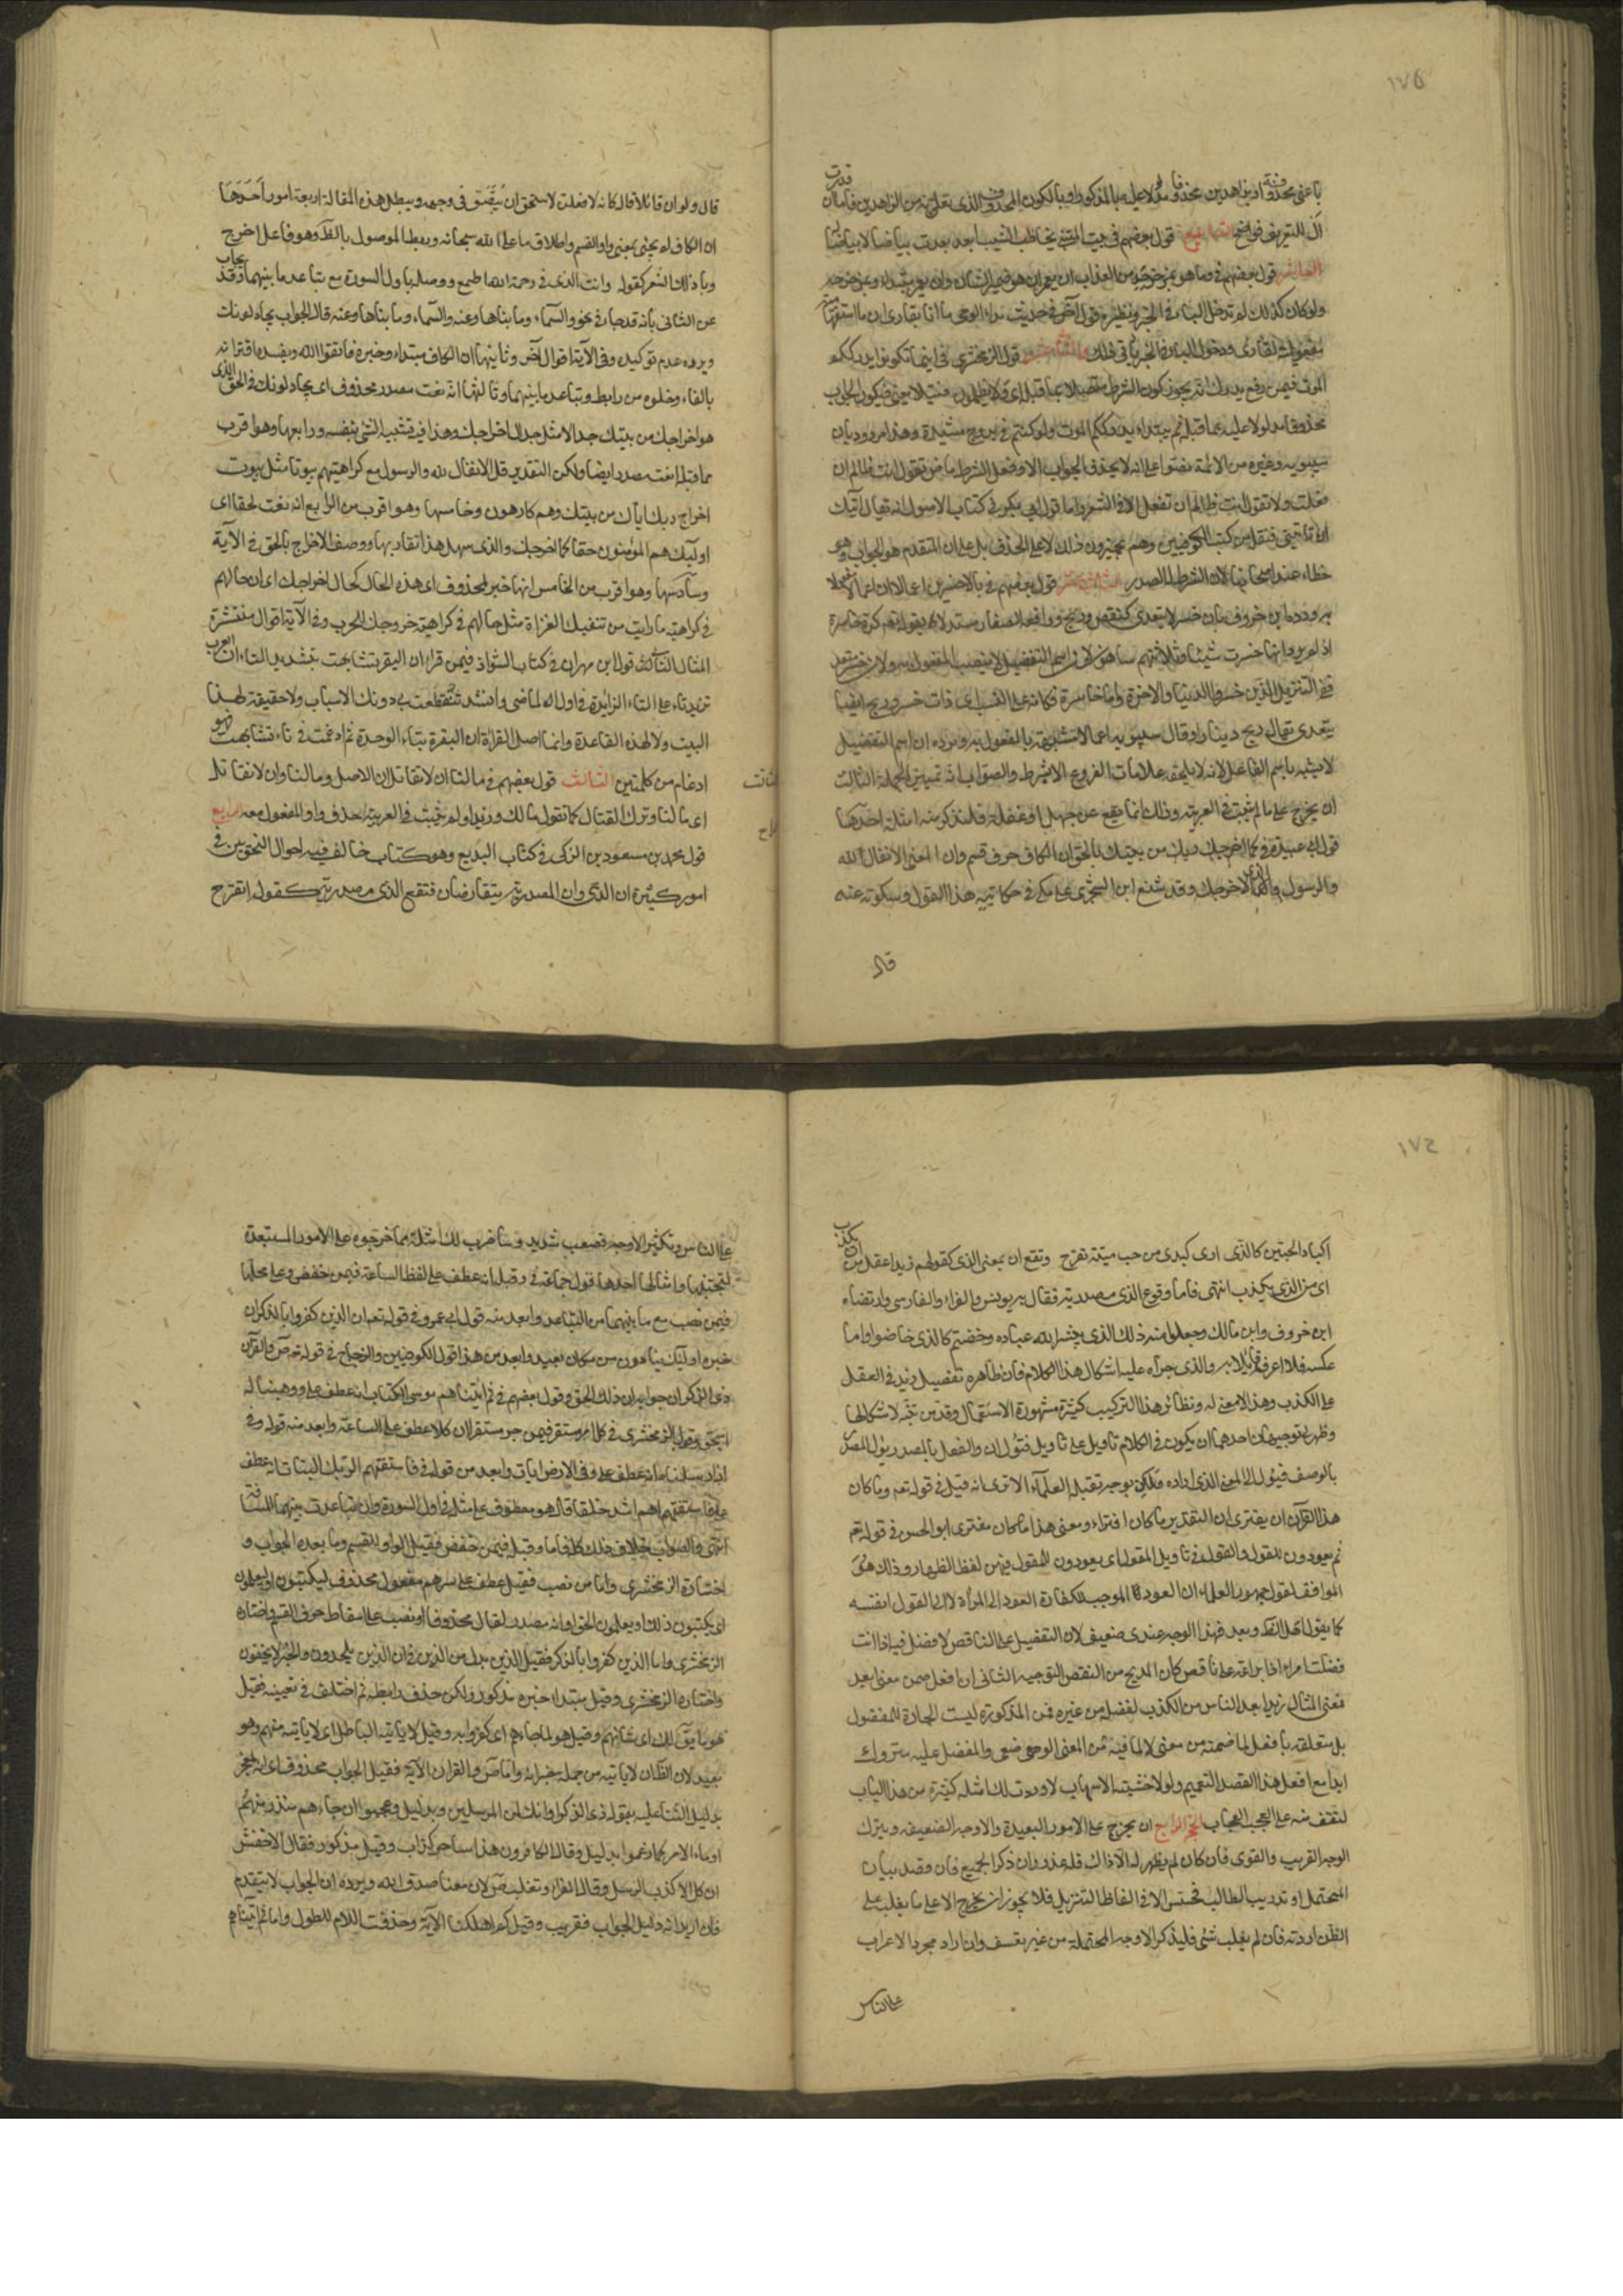 ١٧٥
آل للتعريف فواضح التاسع قول بعضهم في بيت المتنبي يخاطب الشيب ابعد بعدت بياضا لا بياض له
العاشر قول بعضهم في وما هو بمزحزحه من العذاب ان هو ضمير الشان وان يعمر مبتدأ وبمزحزحه
ولو كان كذلك لم تدخل الباء في الخبر ونظيره قول آخر في حديث بدء الوحي ما انا بقارئ ان ما استفهامية
مفعولة لقارئ ودخول الباء في الخبر يأبى ذلك والثاني عشر قول الزمخشري في اينما تكونوا يدرككم
الموت فيمن رفع يدرك انه يجوز كون الشرط متصلا بما قبله اي ولا تظلمون فتيلا يعني فيكون الجواب
محذوفا مدلولا عليه بما قبله ثم يبتدا يدرككم الموت ولو كنتم في بروج مشيدة وهذا مردود بان
سيبويه وغيره من الائمة نصوا على انه لا يحذف الجواب الا وفعل الشرط ماض تقول انت ظالم ان
فعلت ولا تقول انت ظالم ان تفعل الا في الشعر واما قول ابي بكر في كتاب الاصول انه يقال آتيك
ان تاتيني فنقله من كتب الكوفيين وهم يجيزون ذلك لا على الحذف بل على ان المتقدم هو الجواب وهو
خطاء عند اصحابنا لان الشرط له الصدر الثالث عشر قول بعضهم في بالاخسرين اعمالا ان اعمالا مفعول
به ورده ابن خروف بان خسر لا يتعدى كنقيضه ربح ووافقه الصفار مستدلا بقوله تعالى كرة خاسرة
اذ لم يرد انها خسرت شيئا وثلاثتهم ساهون لان اسم التفضيل لا ينصب المفعول به ولان خسر متعد
ففي التنزيل الذين خسروا الدنيا والاخرة واما خاسرة فكانه على النسب اي ذات خسر وربح ايضا
يتعدى يقال ربح دينارا وقال سيبويه اعمالا مشبه بالمفعول به ويرده ان اسم التفضيل
لا يشبه باسم الفاعل لانه لا يلحقه علامات الفروع الا بشرط والصواب انه تمييز الجهة الثالثة
ان يخرج على ما لم يثبت في العربية وذلك انما يقع عن جهل او غفلة فلنذكر منه امثلة احدها
قول ابي عبيدة في كما اخرجك ربك من بيتك بالحق ان الكاف حرف قسم وان المعنى الانفال لله
والرسول والذي اخرجك وقد شنع ابن الشجري على مكي في حكايته هذا القول وسكوته عنه
قال
قال ولو ان قائلا قال كالله لافعلن لاستحق ان يبصق في وجهه ويبطل هذه المقالة اربعة امور احدها
ان الكاف لم يجئ بمعنى واو القسم واطلاق ما على الله سبحانه وربط الموصول بالظاهر وهو فاعل اخرج
وباب ذلك الشعر كقوله وانت الذي في رحمة الله اطمع ووصله باول السورة مع تباعد ما بينهما وقد يجاب
عن الثاني بانه قد جاء في نحو والسماء وما بناها وعنه والسماء وما بناها وعنه قال الجواب يجادلونك
ويرده عدم توكيده وفي الآية اقوال آخر وثانيها ان الكاف مبتداء وخبره فاتقوا الله ويفسده اقترانه
بالفاء وخلوه من رابط وتباعد ما بينهما وثالثها انه نعت مصدر محذوف اي يجادلونك في الحق الذي
هو اخراجك من بيتك جدالا مثل جدال اخراجك وهذا فيه تشبيه الشئ بنفسه ورابعها وهو اقرب
مما قبله انه نعت مصدر ايضا ولكن التقدير قل الانفال لله والرسول مع كراهيتهم ثبوتا مثل ثبوت
اخراج ربك اياك من بيتك وهم كارهون وخامسها وهو اقرب من الرابع انه نعت لحقا اي
اولئك هم المؤمنون حقا كما اخرجك والذي سهل هذا تقاربهما ووصف الاخراج بالحق في الآية
وسادسها وهو اقرب من الخامس انها خبر لمحذوف اي هذه الحال كحال اخراجك اي ان حالهم
في كراهية ما رايت من تنفيلك الغزاة مثل حالهم في كراهية خروجك للحرب وفي الآية اقوال منتشرة
المثال الثاني قول ابن مهران في كتاب الشواذ فيمن قرا ان البقر تشابهت بتشديد التاء ان العرب
تزيد تاء على التاء الزائدة في اول الماضي وانشد تتقطعت بي دونك الاسباب ولا حقيقة لهذا
البيت ولا لهذه القاعدة وانما اصل القراة ان البقرة بتاء الوحدة ثم ادغمت في تاء تشابهت فهو
ادغام من كلمتين الثالث قول بعضهم في ما لنا ان لا نقاتل ان الاصل وما لنا وان لا نقاتل
اي ما لنا وترك القتال كما تقول مالك وزيدا ولم يثبت في العربية حذف واو المفعول معه الرابع
قول محمد بن مسعود بن الزكي في كتاب البديع وهو كتاب خالف فيه اقوال النحويين في
امور كثيرة ان الذي وان المصدرية يتقارضان فتقع الذي مصدرية كقوله اتقرح
١٧٦
اكباد المحبين كالذي ارى كبدي من حب مية تقرح وتقع ان بمعنى الذي كقولهم زيد اعقل من ان يكذب
اي من الذي يكذب انتهى فاما وقوع الذي مصدرية فقال به يونس والفراء والفارسي وارتضاه
ابن خروف وابن مالك وجعلوا منه ذلك الذي يبشر الله عباده وخضتم كالذي خاضوا واما
عكسه فلا اعرف قائلا به والذي جراه عليه اشكال هذا الكلام فان ظاهره تفضيل زيد في العقل
على الكذب وهذا لا معنى له ونظائر هذا التركيب كثيرة مشهورة الاستعمال وقل من تنبه لاشكالها
وظهر لي توجيهان احدهما ان يكون في الكلام تاويل على تاويل فتؤل ان والفعل بالمصدر ويؤل المصدر
بالوصف فيئول الى المعنى الذي اراده ولكن بوجه تقبله العلماء الا ترى انه قيل في قوله تعم وما كان
هذا القرآن ان يفترى ان التقدير ما كان افتراء ومعنى هذا ما كان مفترى ابو الحسن في قوله تعم
ثم يعودون للقول والقول في تاويل المقول اي يعودون للمقول فيهن لفظ الظهار وذلك هو
الموافق لقول جمهور العلماء ان العود الموجب للكفارة العود الى المرأة لا الى القول نفسه
كما يقول اهل الظاهر وبعد فهذا الوجه عندي ضعيف لان التفضيل على الناقص لا فضل فيه اذا انت
فضلت امراء ذا براعة على ناقص كان المديح من النقص التوجيه الثاني ان افعل ضمن معنى ابعد
فمعنى المثال زيد ابعد الناس من الكذب لفضله من غيره فمن المذكورة ليست الجارة للمفضول
بل متعلقة بافعل لما ضمنه من معنى البعد لا لما فيه من المعنى الوضعي والمفضل عليه متروك
ابدا مع افعل هذا لقصد التعميم ولولا خشية الاسهاب لاوردت لك امثلة كثيرة من هذا الباب
لتقف منه على العجب العجاب الجهة الرابع ان يخرج على الامور البعيدة والاوجه الضعيفة ويترك
الوجه القريب والقوي فان كان لم يظهر له الا ذاك فله عذر وان ذكر الجميع فان قصد بيان
المحتمل او تدريب الطالب فحسن الا في الفاظ التنزيل فلا يجوز ان يخرج الا على ما يغلب على
الظن ارادته فان لم يغلب شئ فليذكر الاوجه المحتملة من غير تعسف وان اراد مجرد الاعراب
على الناس
على الناس وتكثير الاوجه فصعب شديد وساضرب لك امثلة مما خرجوه على الامور المستبعدة
لتجتنبها وامثالها احدها قول جماعة في وقيله انه عطف على لفظ الساعة فيمن خفض وعلى محلها
فيمن نصب مع ما بينهما من التباعد وابعد منه قول ابي عمرو في قوله تعم ان الذين كفروا بالذكر ان
خبره اولئك ينادون من مكان بعيد وابعد من هذا قول الكوفيين والزجاج في قوله تعم ص والقرآن
ذي الذكر ان جوابه ان ذلك لحق وقول بعضهم في ثم آتينا موسى الكتاب انه عطف على ووهبنا له
اسحق وقول الزمخشري في كل امر مستقر فيمن جر مستقر ان كلا عطف على الساعة وابعد منه قوله وفي
اذ ارسلناه انه عطف على وفي الارض آيات وابعد من قوله في فاستفتهم الربك البنات انه عطف
على فاستفتهم اهم اشد خلقا قال هو معطوف على مثله في اول السورة وان تباعدت بينهما المسافة
انتهى والصواب خلاف ذلك كله فاما وقيله فيمن خفض فقيل الواو للقسم وما بعده الجواب و
اختاره الزمخشري واما من نصب فقيل عطف على سرهم او مفعول محذوف ليكتبون او يعلمون
اي يكتبون ذلك او يعلمون الحق او انه مصدر لقال محذوفا او نصب على اسقاط حرف القسم واختاره
الزمخشري واما الذين كفروا بالذكر فقيل الذين بدل من الذين في ان الذين يلحدون والخبر لا يخفون
واختاره الزمخشري وقيل مبتدا خبره مذكور ولكن حذف رابطه ثم اختلف في تعيينه فقيل
هو ما يقال لك اي شانهم وقيل هو لما جاءهم اي كفروا به وقيل لا ياتيه الباطل اي لا ياتيه منهم وهو
بعيد لان الظاهر ان لا ياتيه من جملة خبر انه واما ص والقران الآية فقيل الجواب محذوف اي انه لمعجز
بدليل الثناء عليه بقوله ذي الذكر او انك لمن المرسلين بدليل وعجبوا ان جاءهم منذر منهم
او ما الامر كما زعموا بدليل وقال الكافرون هذا ساحر كذاب وقيل مذكور فقال الاخفش
ان كل الا كذب الرسل وقال الفراء وثعلب ص لان معناها صدق الله ويرده ان الجواب لا يتقدم
فان اريد انه دليل الجواب فقريب وقيل كم اهلكنا الآية وحذفت اللام للطول واما ثم آتيناهم